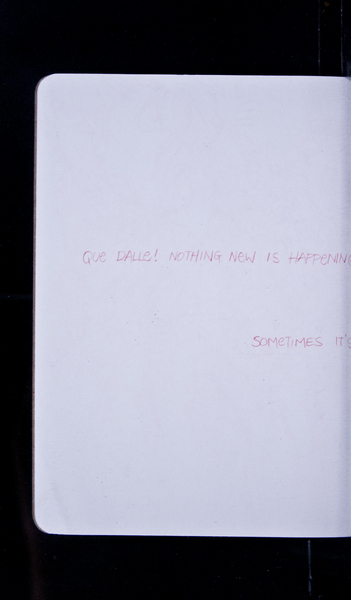 QUE DALLE! NOTHING NEW IS HAPPENING
SOMETIMES IT'S